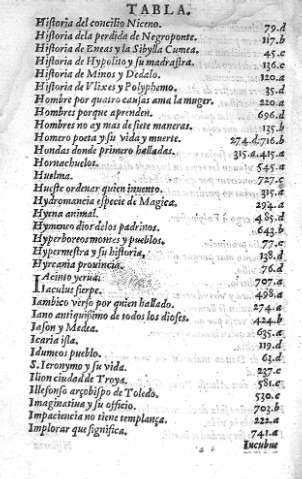 TABLA.
Historia del concilio Niceno. 79.d
Historia dela perdida de Negroponte. 117.b
Historia de Eneas y la Sibylla Cumea. 45.c
Historia de Hypolito y su madrastra. 136.c
Historia de Minos y Dedalo. 120.a
Historia de Vlixes y Polyphemo. 35.d
Hombre por quatro causas ama la muger. 220.a
Hombres porque aprenden. 696.d
Hombres no ay mas de siete maneras. 135.b
Homero poeta y su vida y muerte. 274.d.716.b
Hondas donde primero halladas. 315.d.415.a
Hornachuelos. 545.a
Huelma. 727.c
Hueste ordenar quien inuento. 315.a
Hydromancia especie de Magica. 294.a
Hyena animal. 485.d
Hymeneo dios delos padrinos. 643.b
Hyperboreos montes y pueblos. 77.c
Hypermestra y su historia. 138.d
Hyrcania prouincia. 76.d
Iacinto yerua. 707.a
Iaculus sierpe. 498.a
Iambico verso por quien hallado. 274.a
Iano antiquissimo de todos los dioses. 424.b
Iason y Medea. 635.a
Icaria isla. 119.d
Idumeos pueblo. 63.d
S. Ieronymo y su vida. 237.c
Ilion ciudad de Troya. 581.c
Illefonso arçobispo de Toledo. 530.c
Imaginatiua y su officio. 703.b
Impaciencia no tiene templança. 222.a
Implorar que significa. 741.a
Incubue